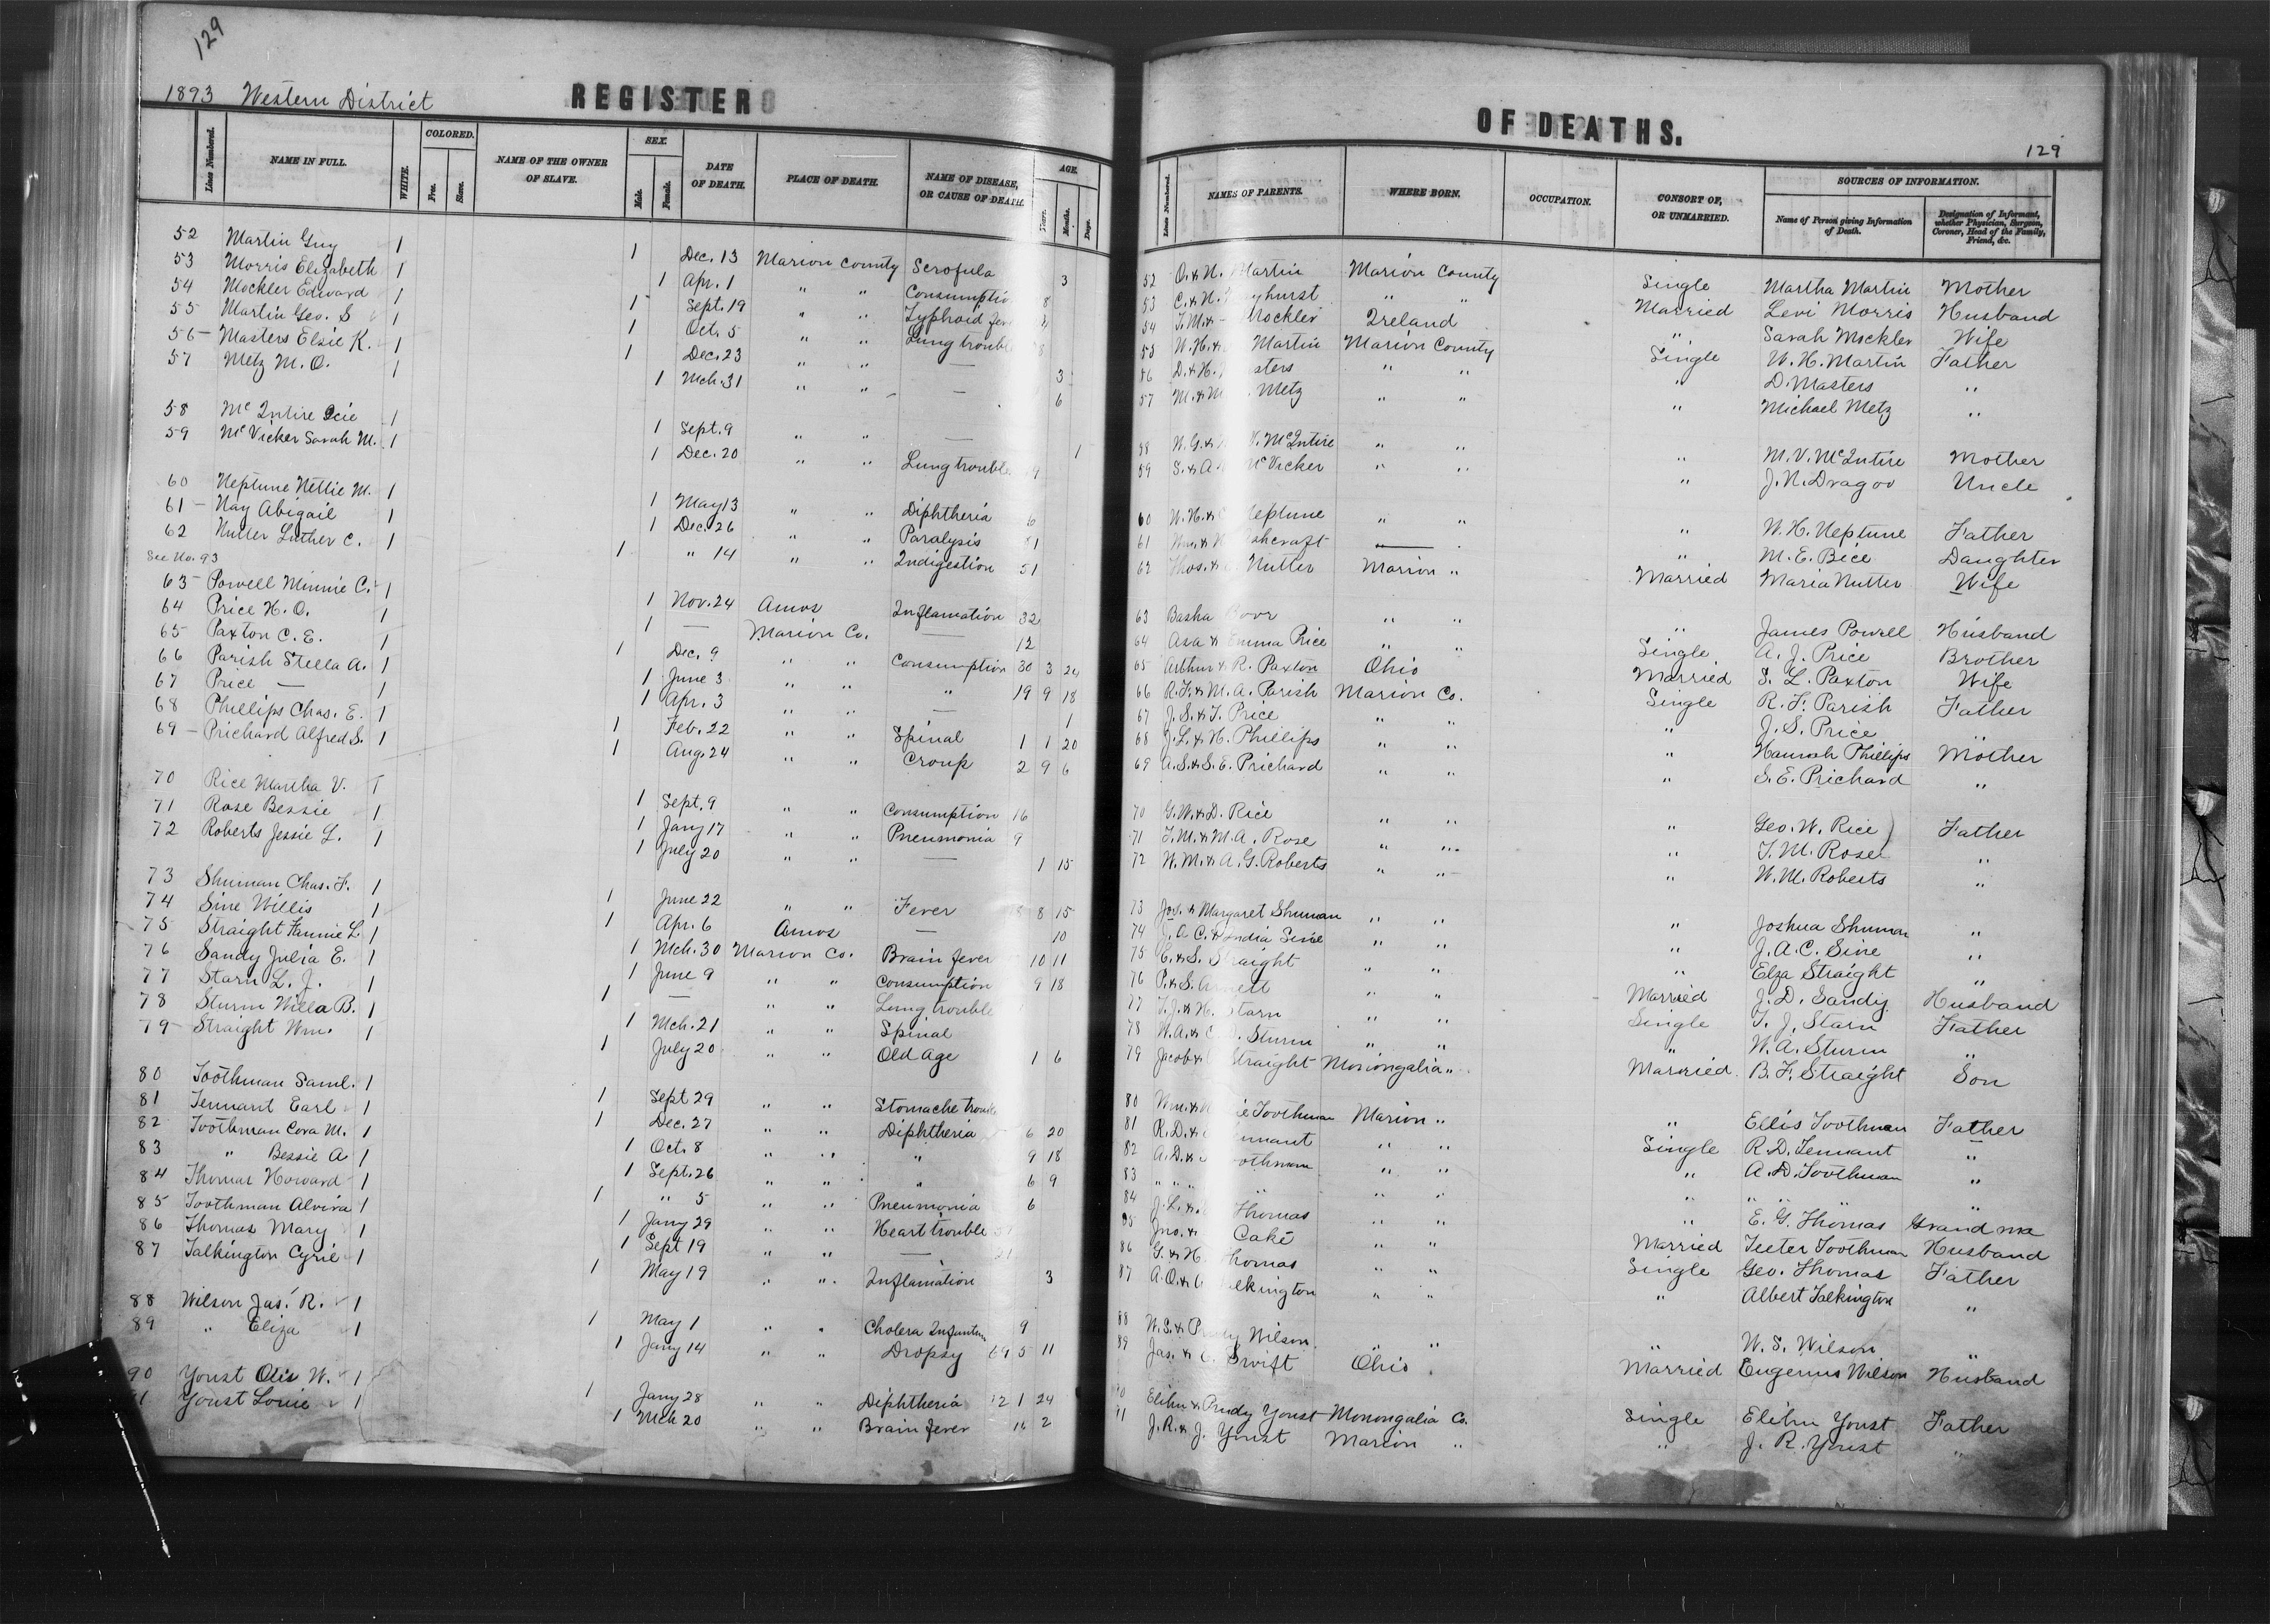 129
1893 Western District
REGISTER
Lines Numbered.
NAME IN FULL.
WHITE.
COLORED.
Free.
Slave.
NAME OF THE OWNER OF SLAVE.
SEX.
Male.
Female.
DATE OF DEATH.
PLACE OF DEATH.
NAME OF DISEASE, OR CAUSE OF DEATH.
AGE.
Years.
Months.
Days.
52 Martin Guy 1 1 Dec. 13 Marion County Scrofula 3
53 Morris Elizabeth 1 1 Apr. 1 " " Consumptio
54 Mockler Edward 1 1 Sept. 19 " " Typhoid fev
55 Martin Geo. S 1 1 Oct. 5 " " Lung troubl
56 Masters Elsie K. 1 1 Dec. 23 " " — 3
57 Metz M. O. 1 1 Mch. 31 " " — 6
58 McIntire 1 1 Sept. 9 " " — 1
59 McVicker Sarah M. 1 1 Dec. 20 " " Lung trouble 9
60 Neptune Nettie M. 1 1 May 13 " " Diphtheria 6
61 Nay Abigail 1 1 Dec. 26 " " Paralysis 81
62 Nutter Luther C. 1 1 " 14 " " Indigestion 51
See No. 93
63 Powell Minnie C. 1 1 Nov. 24 Amos Inflamation 32
64 Price H. O. 1 1 — Marion Co. — 12
65 Paxton C. E. 1 1 Dec. 9 " " Consumption 30 3 24
66 Parish Stella A. 1 1 June 3 " " " 19 9 18
67 Price — 1 1 Apr. 3 " " — 1
68 Phillips Chas. E. 1 1 Feb. 22 " " Spinal 1 1 20
69 Prichard Alfred S. 1 1 Aug. 24 " " Croup 2 9 6
70 Rice Martha V. 1 1 Sept. 9 " " Consumption 16
71 Rose Bessie 1 1 Jany 17 " " Pneumonia 9
72 Roberts Jessie L. 1 1 July 20 " " — 1 15
73 Shuman Chas. F. 1 1 June 22 " " Fever 8 15
74 Sine Willis 1 1 Apr. 6 Amos — 10
75 Straight Fannie L. 1 1 Mch. 30 Marion Co. Brain fever 10 11
76 Sandy Julia E. 1 1 June 9 " " Consumption 9 18
77 Starn L. J. 1 1 — " " Lung trouble
78 Sturm Willa B. 1 1 Mch. 21 " " Spinal
79 Straight Wm. 1 1 July 20 " " Old Age 1 6
80 Toothman Saml. 1 1 Sept 29 " " Stomache troub
81 Tennant Earl 1 1 Dec. 27 " " Diphtheria 6 20
82 Toothman Cora M. 1 1 Oct. 8 " " " 9 18
83 " Bessie A 1 1 Sept. 26 " " " 6 9
84 Thomas Howard 1 1 " 5 " " Pneumonia 6
85 Toothman Alvira 1 1 Jany 29 " " Heart trouble
86 Thomas Mary 1 1 Sept 19 " " — 21
87 Talkington Cyrie 1 1 May 19 " " Inflamation 3
88 Wilson Jas. R. 1 1 May 1 " " Cholera Infantum 9
89 " Eliza 1 1 Jany 14 " " Dropsy 69 5 11
90 Youst Olis W. 1 1 Jany 28 " " Diphtheria 12 1 24
Youst Louie 1 1 Mch 20 " " Brain fever 16 2
OF DEATHS.
129
Lines Numbered.
NAMES OF PARENTS.
WHERE BORN.
OCCUPATION.
CONSORT OF, OR UNMARRIED.
SOURCES OF INFORMATION.
Name of Person giving Information of Death.
Designation of Informant, whether Physician, Surgeon, Coroner, Head of the Family, Friend, &c.
52 O. & N. Martin Marion County Single Martha Martin Mother
53 C. & N. yhurst " " Married Levi Morris Husband
54 T. M. & – Mockler Ireland " Sarah Mockler Wife
55 W. H. & Martin Marion County Single W. H. Martin Father
56 D. & H. sters " " " D. Masters "
57 M. & M. Metz " " " Michael Metz "
58 N. G. & V. McIntire " " " M. V. McIntire Mother
59 S. & A. McVicker " " " J. N. Dragoo Uncle
60 W. H. & Neptune " " " W. H. Neptune Father
61 Wm. & shcraft — " M. E. Bice Daughter
62 Thos. & Nutter Marion " Married Maria Nutter Wife
63 Basha " " " James Powell Husband
64 Asa & Emma Price " " Single A. J. Price Brother
65 Arthur & R. Paxton Ohio Married S. L. Paxton Wife
66 R. F. & M. A. Parish Marion Co. Single R. F. Parish Father
67 J. S. & T. Price " " " J. S. Price "
68 J. L. & H. Phillips " " " Hannah Phillips Mother
69 A. S. & S. E. Prichard " " " S. E. Prichard "
70 G. W. & D. Rice " " " Geo. W. Rice Father
71 T. M. & M. A. Rose " " " T. M. Rose "
72 W. M. & A. G. Roberts " " " W. M. Roberts "
73 Jos. & Margaret Shuman " " " Joshua Shuman "
74 J. A. C. & India Sine " " " J. A. C. Sine "
75 E. & S. Straight " " " Elza Straight "
76 P. & S. Arnett " " Married J. D. Sandy Husband
77 T. J. & H. Starn " " Single T. J. Starn Father
78 W. A. & C. Sturm " " " W. A. Sturm "
79 Jacob & Straight Monongalia " Married B. F. Straight Son
80 Wm. & Toothman Marion " " Ellis Toothman Father
81 R. D. & nnant " " Single R. D. Tennant "
82 A. D. & othman " " " A. D. Toothman "
83 " " " " " " " " " "
84 J. L. & Thomas " " " E. G. Thomas Grand ma
85 Jno. & Cake " " Married Teeter Toothman Husband
86 G. & H. homas " " Single Geo. Thomas Father
87 A. O. & lkington " " " Albert Talkington "
88 W. S. & Prudy Wilson " " " W. S. Wilson "
89 Jas. & C. Swift Ohio Married Eugenus Wilson Husband
90 Elihu & Prudy Youst Monongalia Co. Single Elihu Youst Father
91 J. R. & J. Youst Marion " " J. R. Youst "